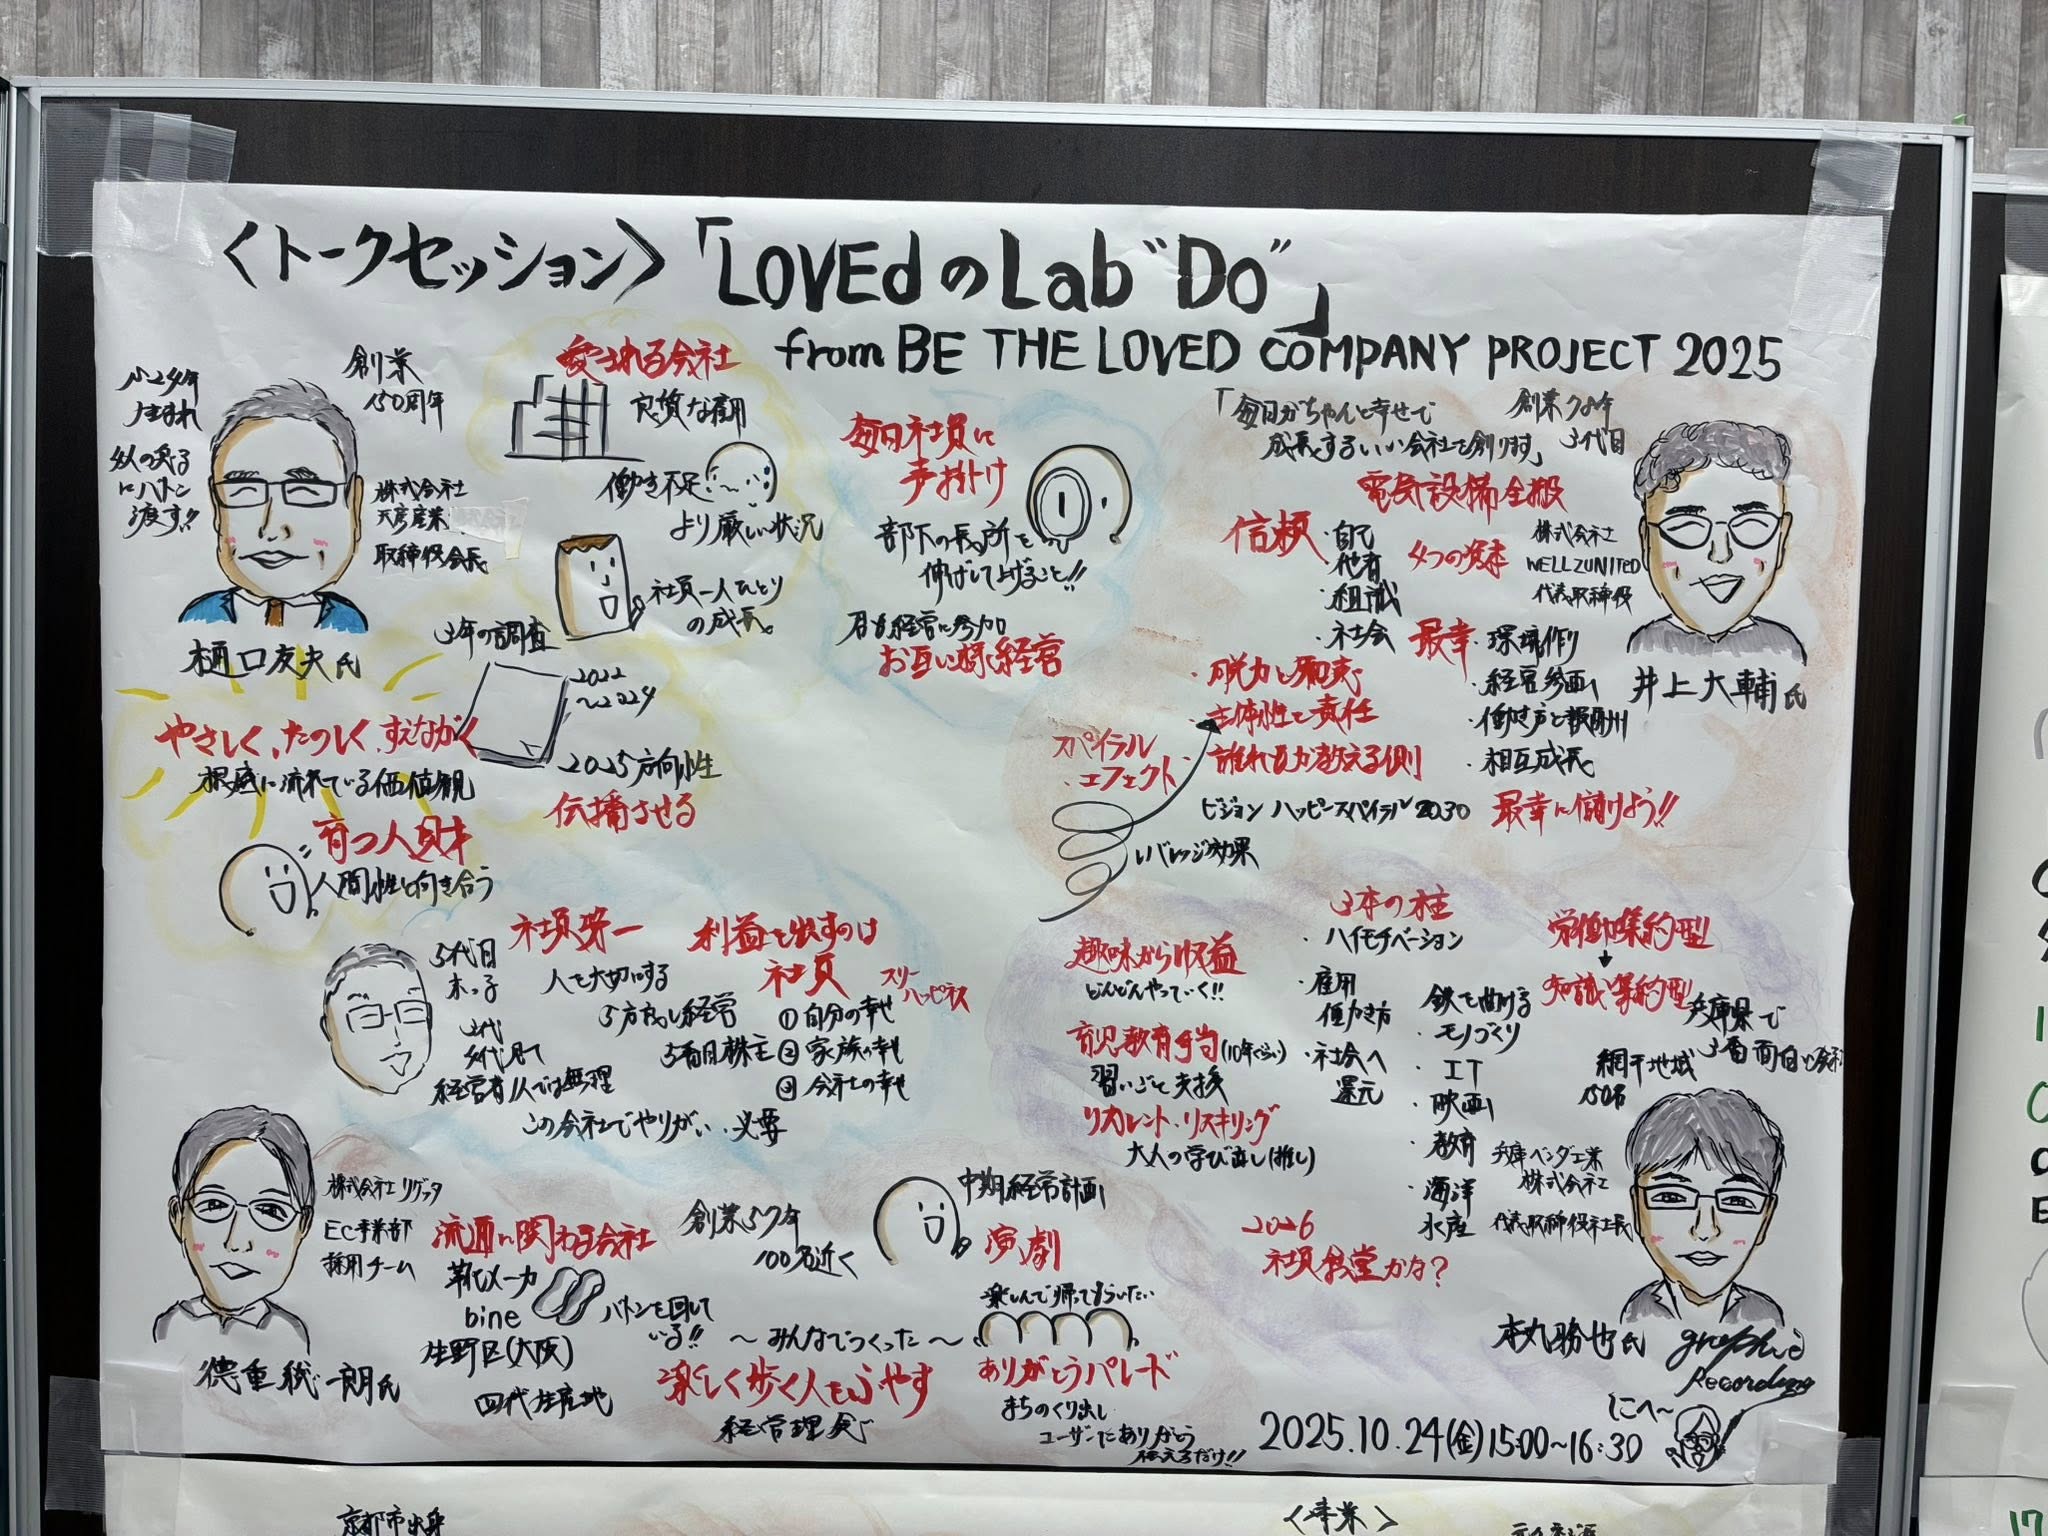 〈トークセッション〉「LOVEdのLab"Do"」
from BE THE LOVED COMPANY PROJECT 2025
創業
150周年
株式会社
天彦産業
取締役会長
樋口友夫氏
愛される会社
良質な雇用
働き不足
より厳しい状況
社員一人ひとり
の成長。
3年の調査
2022
〜2024
2025方向性
伝播させる
やさしく、たのしく、すえながく
根底に流れている価値観
育つ人財
人間性と向き合う
毎日社員に
声掛け
部下の長所を
伸ばして上げること!!
経営に参加
お互い様経営
「毎日がちゃんと幸せで
成長するいい会社を創ります」
3代目
電気設備全搬
信頼
・自己
・他者
・組織
・社会
4つの
株式会社
WELLZUNITED
代表取締役
井上大輔氏
最幸
・環境作り
・経営参画
・働き方と報酬
・相互成長
・主体性と責任
・誰もが教える側
スパイラル
エフェクト
レバレッジ効果
ビジョン ハッピースパイラル2030
最幸に儲けよう!!
5代目
末っ子
社員第一
人を大切にする
5方良し経営
5番目株主
経営者1人では無理
この会社でやりがい・必要
利益を出すのは
社員
スリー
ハッピネス
① 自分の幸せ
② 家族の幸せ
③ 会社の幸せ
趣味から収益
どんどんやっていく!!
育児教育手当(10年ぐらい)
習いごと支援
リカレント・リスキリング
大人の学び直し(推し)
3本の柱
・ハイモチベーション
・雇用
働き方
・社会へ
還元
労働集約型
↓
知識集約型
鉄を曲げる
・モノづくり
・IT
・映画
・教育
・海洋
水産
兵庫県で
3番目面白い会社
網干地域
150名
兵庫ベンダ工業
株式会社
代表取締役社長
本丸勝也氏
2026
社員食堂かな?
株式会社リゲッタ
EC事業部
採用チーム
流通に関わる会社
靴メーカー
bine
生野区(大阪)
バトンを回して
いる!!
創業57年
100名近く
中期経営計画
演劇
楽しんで帰ってもらいたい
〜みんなでつくった〜
楽しく歩く人をふやす
経営理念
ありがとうパレード
まちのくり出し
ユーザーにありがとう
伝えるだけ!!
graphic
Recording
2025.10.24(金)15:00~16:30
京都市出身